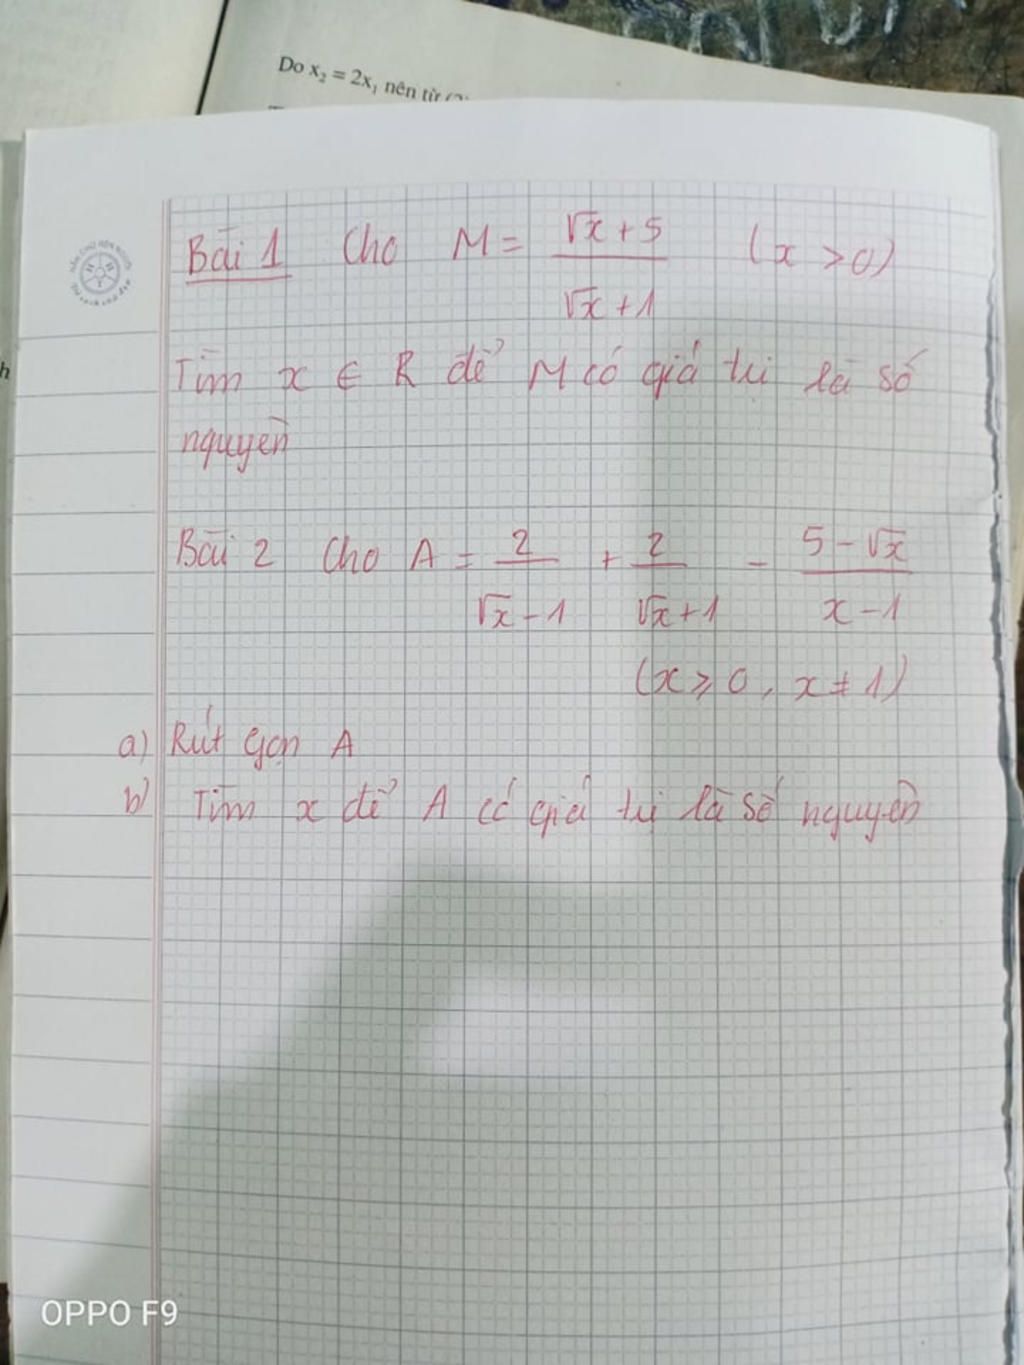 Do x₂ = 2x₁ nên từ (2)
Bài 1 Cho M = (√x + 5)/(√x + 1) (x > 0)
Tìm x ∈ R để M có giá trị là số
nguyên
Bài 2 Cho A = 2/(√x - 1) + 2/(√x + 1) - (5 - √x)/(x - 1)
(x ≥ 0, x ≠ 1)
a) Rút gọn A
b) Tìm x để A có giá trị là số nguyên
OPPO F9